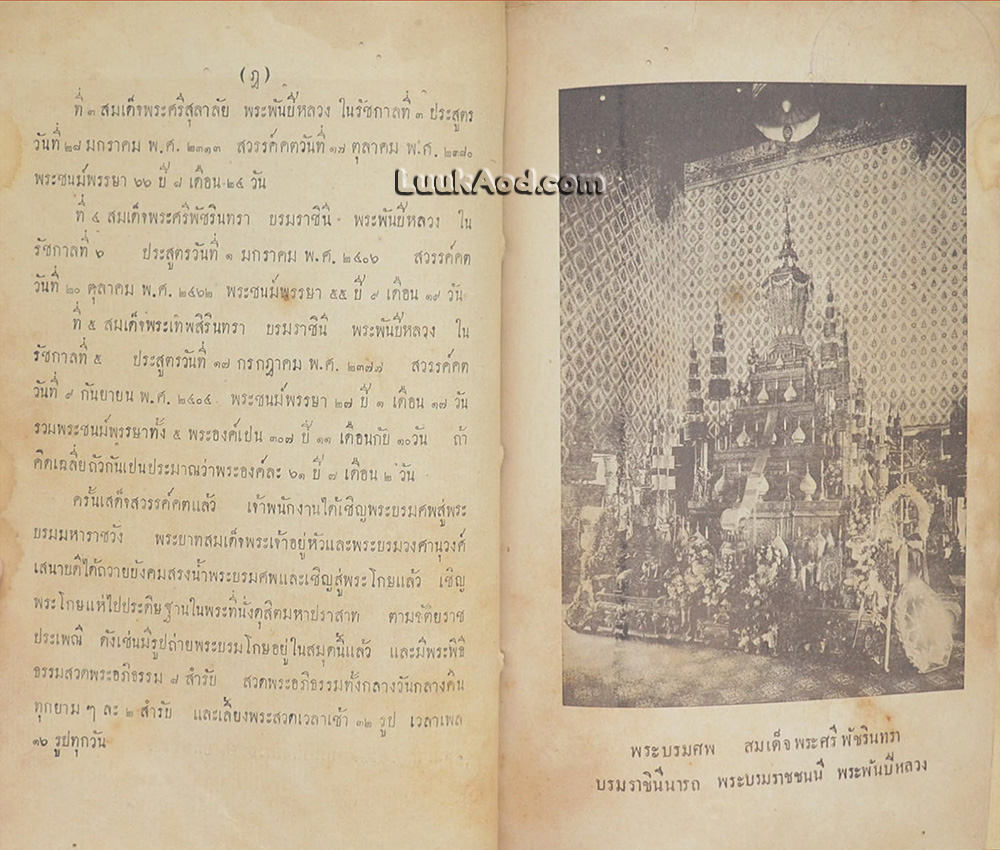 (ฎ)
ที่ ๓ สมเด็จพระศรีสุลาลัย พระพันปีหลวง ในรัชกาลที่ ๓ ประสูตร
วันที่ ๒๘ มกราคม พ.ศ. ๒๓๑๓ สวรรค์คตวันที่ ๑๗ ตุลาคม พ.ศ. ๒๓๘๐
พระชนม์พรรษา ๖๖ ปี ๘ เดือน ๒๔ วัน
ที่ ๔ สมเด็จพระศรีพัชรินทรา บรมราชินี พระพันปีหลวง ใน
รัชกาลที่ ๖ ประสูตรวันที่ ๑ มกราคม พ.ศ. ๒๔๐๖ สวรรค์คต
วันที่ ๒๐ ตุลาคม พ.ศ. ๒๔๖๒ พระชนม์พรรษา ๕๕ ปี ๙ เดือน ๑๙ วัน
ที่ ๕ สมเด็จพระเทพสิรินทรา บรมราชินี พระพันปีหลวง ใน
รัชกาลที่ ๕ ประสูตรวันที่ ๑๗ กรกฎาคม พ.ศ. ๒๓๗๗ สวรรค์คต
วันที่ ๙ กันยายน พ.ศ. ๒๔๐๔ พระชนม์พรรษา ๒๗ ปี ๑ เดือน ๑๗ วัน
รวมพระชนม์พรรษาทั้ง ๕ พระองค์เปน ๓๐๗ ปี ๑๑ เดือนกับ ๑๐วัน ถ้า
คิดเฉลี่ยถัวกันเปนประมาณว่าพระองค์ละ ๖๑ ปี ๗ เดือน ๒ วัน
ครั้นเสด็จสวรรค์คตแล้ว เจ้าพนักงานได้เชิญพระบรมศพสู่พระ
บรมมหาราชวัง พระบาทสมเด็จพระเจ้าอยู่หัวและพระบรมวงศานุวงศ์
เสนาบดีได้ถวายบังคมสรงน้ำพระบรมศพและเชิญสู่พระโกษแล้ว เชิญ
พระโกษแห่ไปประดิษฐานในพระที่นั่งดุสิตมหาปราสาท ตามขัติยราช
ประเพณี ดังเช่นมีรูปถ่ายพระบรมโกษอยู่ในสมุดนี้แล้ว และมีพระพิธี
ธรรมสวดพระอภิธรรม ๘ สำรับ สวดพระอภิธรรมทั้งกลางวันกลางคืน
ทุกยาม ๆ ละ ๒ สำรับ และเลี้ยงพระสวดเวลาเช้า ๓๒ รูป เวลาเพล
๑๖ รูปทุกวัน
LuukAod.com
พระบรมศพ สมเด็จพระศรีพัชรินทรา
บรมราชินีนารถ พระบรมราชชนนี พระพันปีหลวง